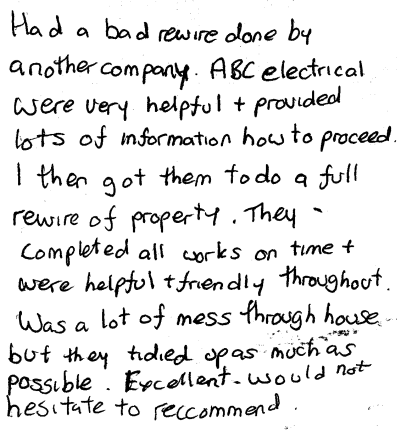 Had a bad rewire done by
another company. ABC electrical
were very helpful + provided
lots of information how to proceed.
I then got them to do a full
rewire of property. They -
completed all works on time +
were helpful + friendly throughout.
Was a lot of mess through house
but they tidied up as much as
possible. Excellent - would not
hesitate to reccommend.